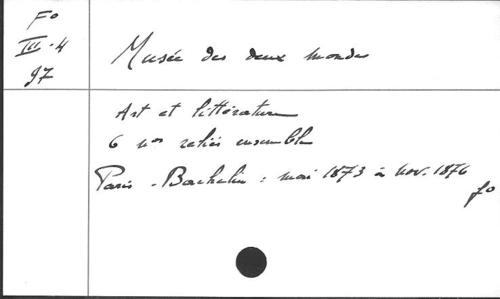 Fº
III-4
97
Musée des deux mondes
Art et littérature
6 nos reliés ensemble
Paris - Bachelin : mai 1873 à nov. 1876
fº